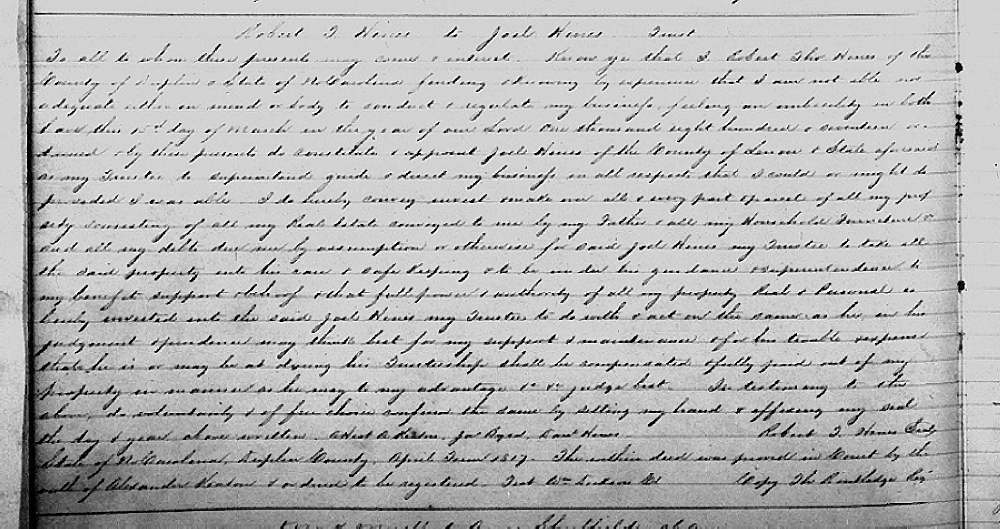 Robert T. Hines to Joel Hines Trust
To all to whom these presents may come & interest. Know ye that I Robert Thos Hines of the
County of Duplin & State of No Carolina finding & knowing by experience that I am not able nor
adequate either in mind or body to conduct & regulate my business, feeling an imbecility in both
have this 15th day of March in the year of our Lord One thousand eight hundred & seventeen
& by these presents do constitute & appoint Joel Hines of the County of Lenoir & State aforesaid
as my Trustee to superintend guide & direct my business in all respects that I could or might do
provided I was able. I do hereby convey invest & make over all & every part & parcel of all my prop
erty consisting of all my Real Estate conveyed to me by my Father & all my Household Furniture &
and all my debts due me by assumption or otherwise for said Joel Hines my Trustee to take all
the said property into his care & safe keeping & to be under his guidance & superintendence to
my benefit support & behoof & that full power & authority of all my property Real & Personal is
hereby invested into the said Joel Hines my Trustee to do with & act on the same as he in his
judgment & prudence may think best for my support & maintenance & for his trouble & expense
that he is or may be at during his Trusteeship shall be compensated & fully paid out of my
property in manner as he may to my advantage judge best. In testimony to the
above, do voluntarily & of free choice confirm the same by setting my hand & affixing my seal
the day & year above written. Robert T. Hines Seal
State of No Carolina, Duplin County, April Term 1817. The within deed was proved in Court by the
oath of Alexander Keaton & ordered to be registered. Test Wm Dickson Clk Copy Tho Routledge Reg